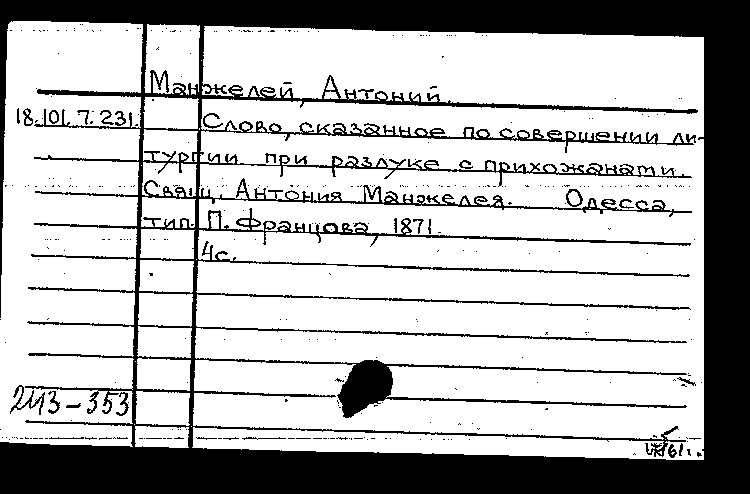 Манжелей, Антоний.
18.101.7.231. Слово, сказанное по совершении ли-
тургии при разлуке с прихожанами.
Свящ. Антония Манжелея. Одесса,
тип. П. Францова, 1871.
4с.
2113-353